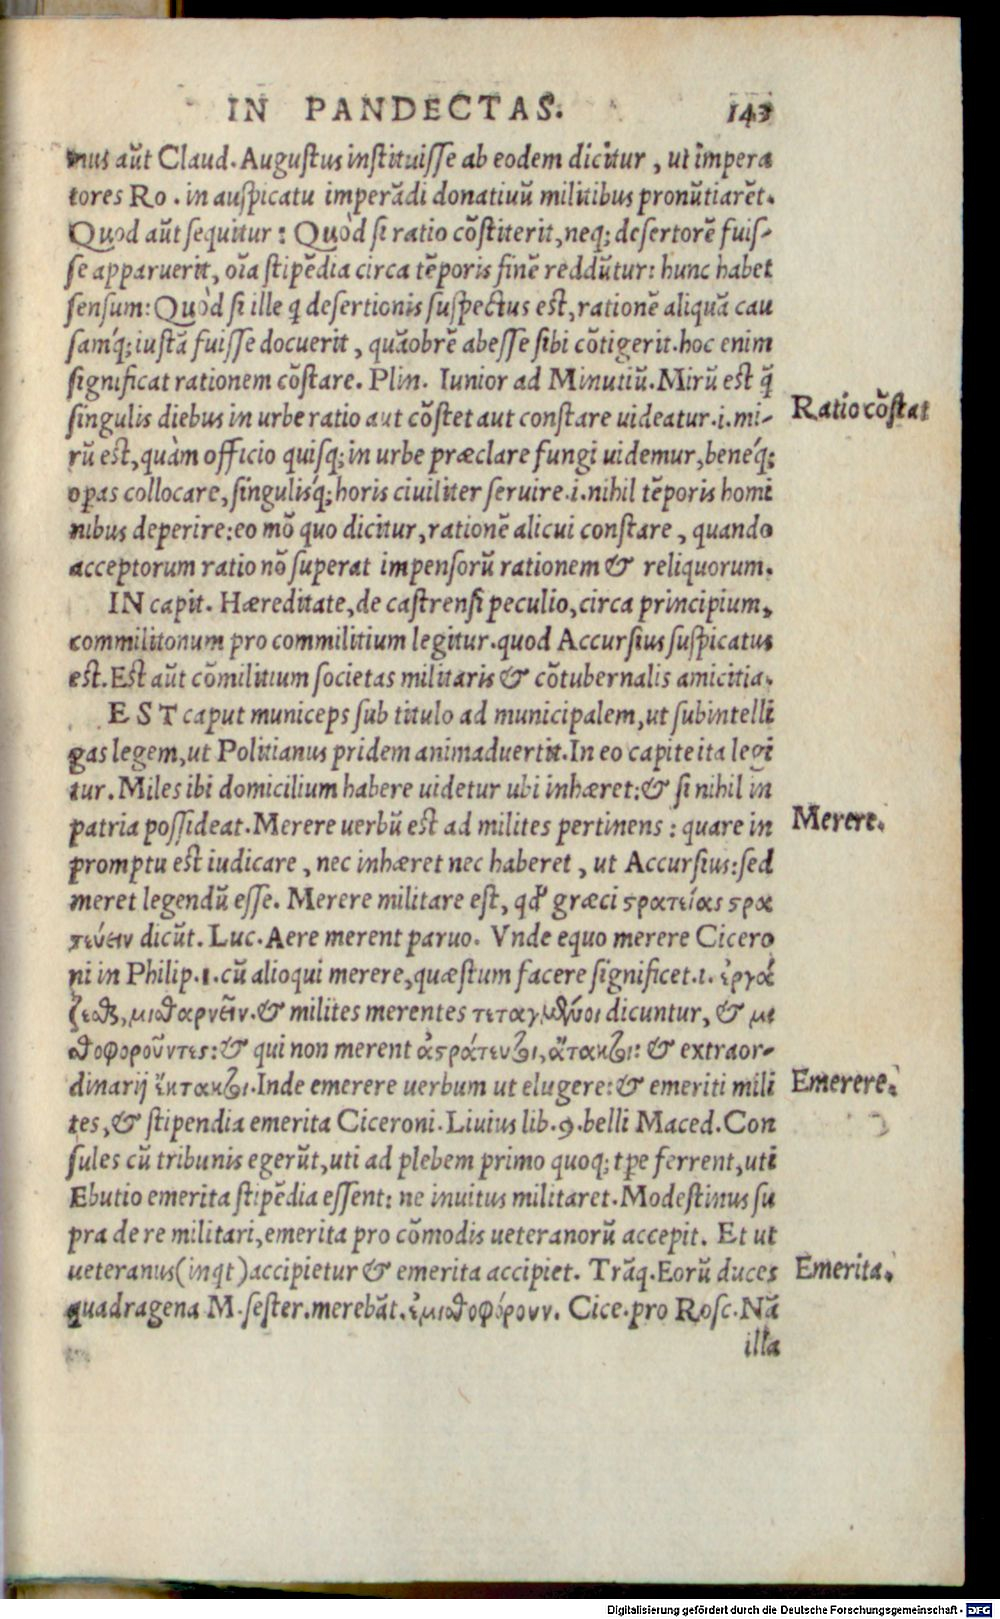 IN PANDECTAS. 143
mus aũt Claud. Augustus instituisse ab eodem dicitur, ut impera
tores Ro. in auspicatu imperãdi donatiuũ militibus pronũtiarẽt.
Quod aũt sequitur: Quòd si ratio cõstiterit, neq; desertorẽ fuis-
se apparuerit, oĩa stipẽdia circa tẽporis finẽ reddũtur: hunc habet
sensum: Quòd si ille q desertionis suspectus est, rationẽ aliquã cau
samq́; iustã fuisse docuerit, quãobrẽ abesse sibi cõtigerit. hoc enim
significat rationem cõstare. Plin. Iunior ad Minutiũ. Mirũ est q̃
singulis diebus in urbe ratio aut cõstet aut constare uideatur .i. mi-
rũ est, quàm officio quisq; in urbe præclare fungi uidemur, beneq́;
oꝑas collocare, singulisq́; horis ciuiliter seruire .i. nihil tẽporis homi
nibus deperire: eo mõ quo dicitur, rationẽ alicui constare, quando
acceptorum ratio nõ superat impensorũ rationem & reliquorum.
IN capit. Hæreditate, de castrensi peculio, circa principium,
commilitonum pro commilitium legitur. quod Accursius suspicatus
est. Est aũt cõmilitium societas militaris & cõtubernalis amicitia.
EST caput municeps sub titulo ad municipalem, ut subintelli
gas legem, ut Politianus pridem animaduertit. In eo capite ita legi
tur. Miles ibi domicilium habere uidetur ubi inhæret: & si nihil in
patria possideat. Merere uerbũ est ad milites pertinens: quare in
promptu est iudicare, nec inhæret nec haberet, ut Accursius: sed
meret legendũ esse. Merere militare est, qđ græci ϛρατείας ϛρα
τεύειν dicũt. Luc. Aere merent paruo. Vnde equo merere Cicero
ni in Philip. 1. cũ alioqui merere, quæstum facere significet .i. ἐργά
ζεσθαι, μισθαρνεῖν. & milites merentes τεταγμένοι dicuntur, & μι
σθοφοροῦντες: & qui non merent ἀϛράτευτοι, ἄτακτοι: & extraor-
dinarij ἔκτακτοι. Inde emerere uerbum ut elugere: & emeriti mili
tes, & stipendia emerita Ciceroni. Liuius lib. 9. belli Maced. Con
sules cũ tribunis egerũt, uti ad plebem primo quoq; tꝑe ferrent, uti
Ebutio emerita stipẽdia essent: ne inuitus militaret. Modestinus su
pra de re militari, emerita pro cõmodis ueteranorũ accepit. Et ut
ueteranus (inqt) accipietur & emerita accipiet. Trãq. Eorũ duces
quadragena M. sester. merebãt. ἐμισθοφόρουν. Cice. pro Rosc. Nã
illa
Ratio cõstat
Merere.
Emerere.
Emerita.
Digitalisierung gefördert durch die Deutsche Forschungsgemeinschaft - DFG